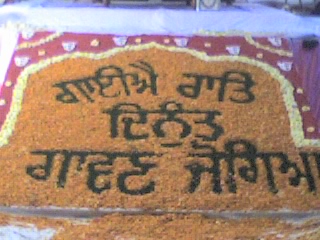 ਗਾਈਐ ਰਾਤਿ
ਦਿਨੰਤੁ
ਗਾਵਣ ਜੋਗਿਆ